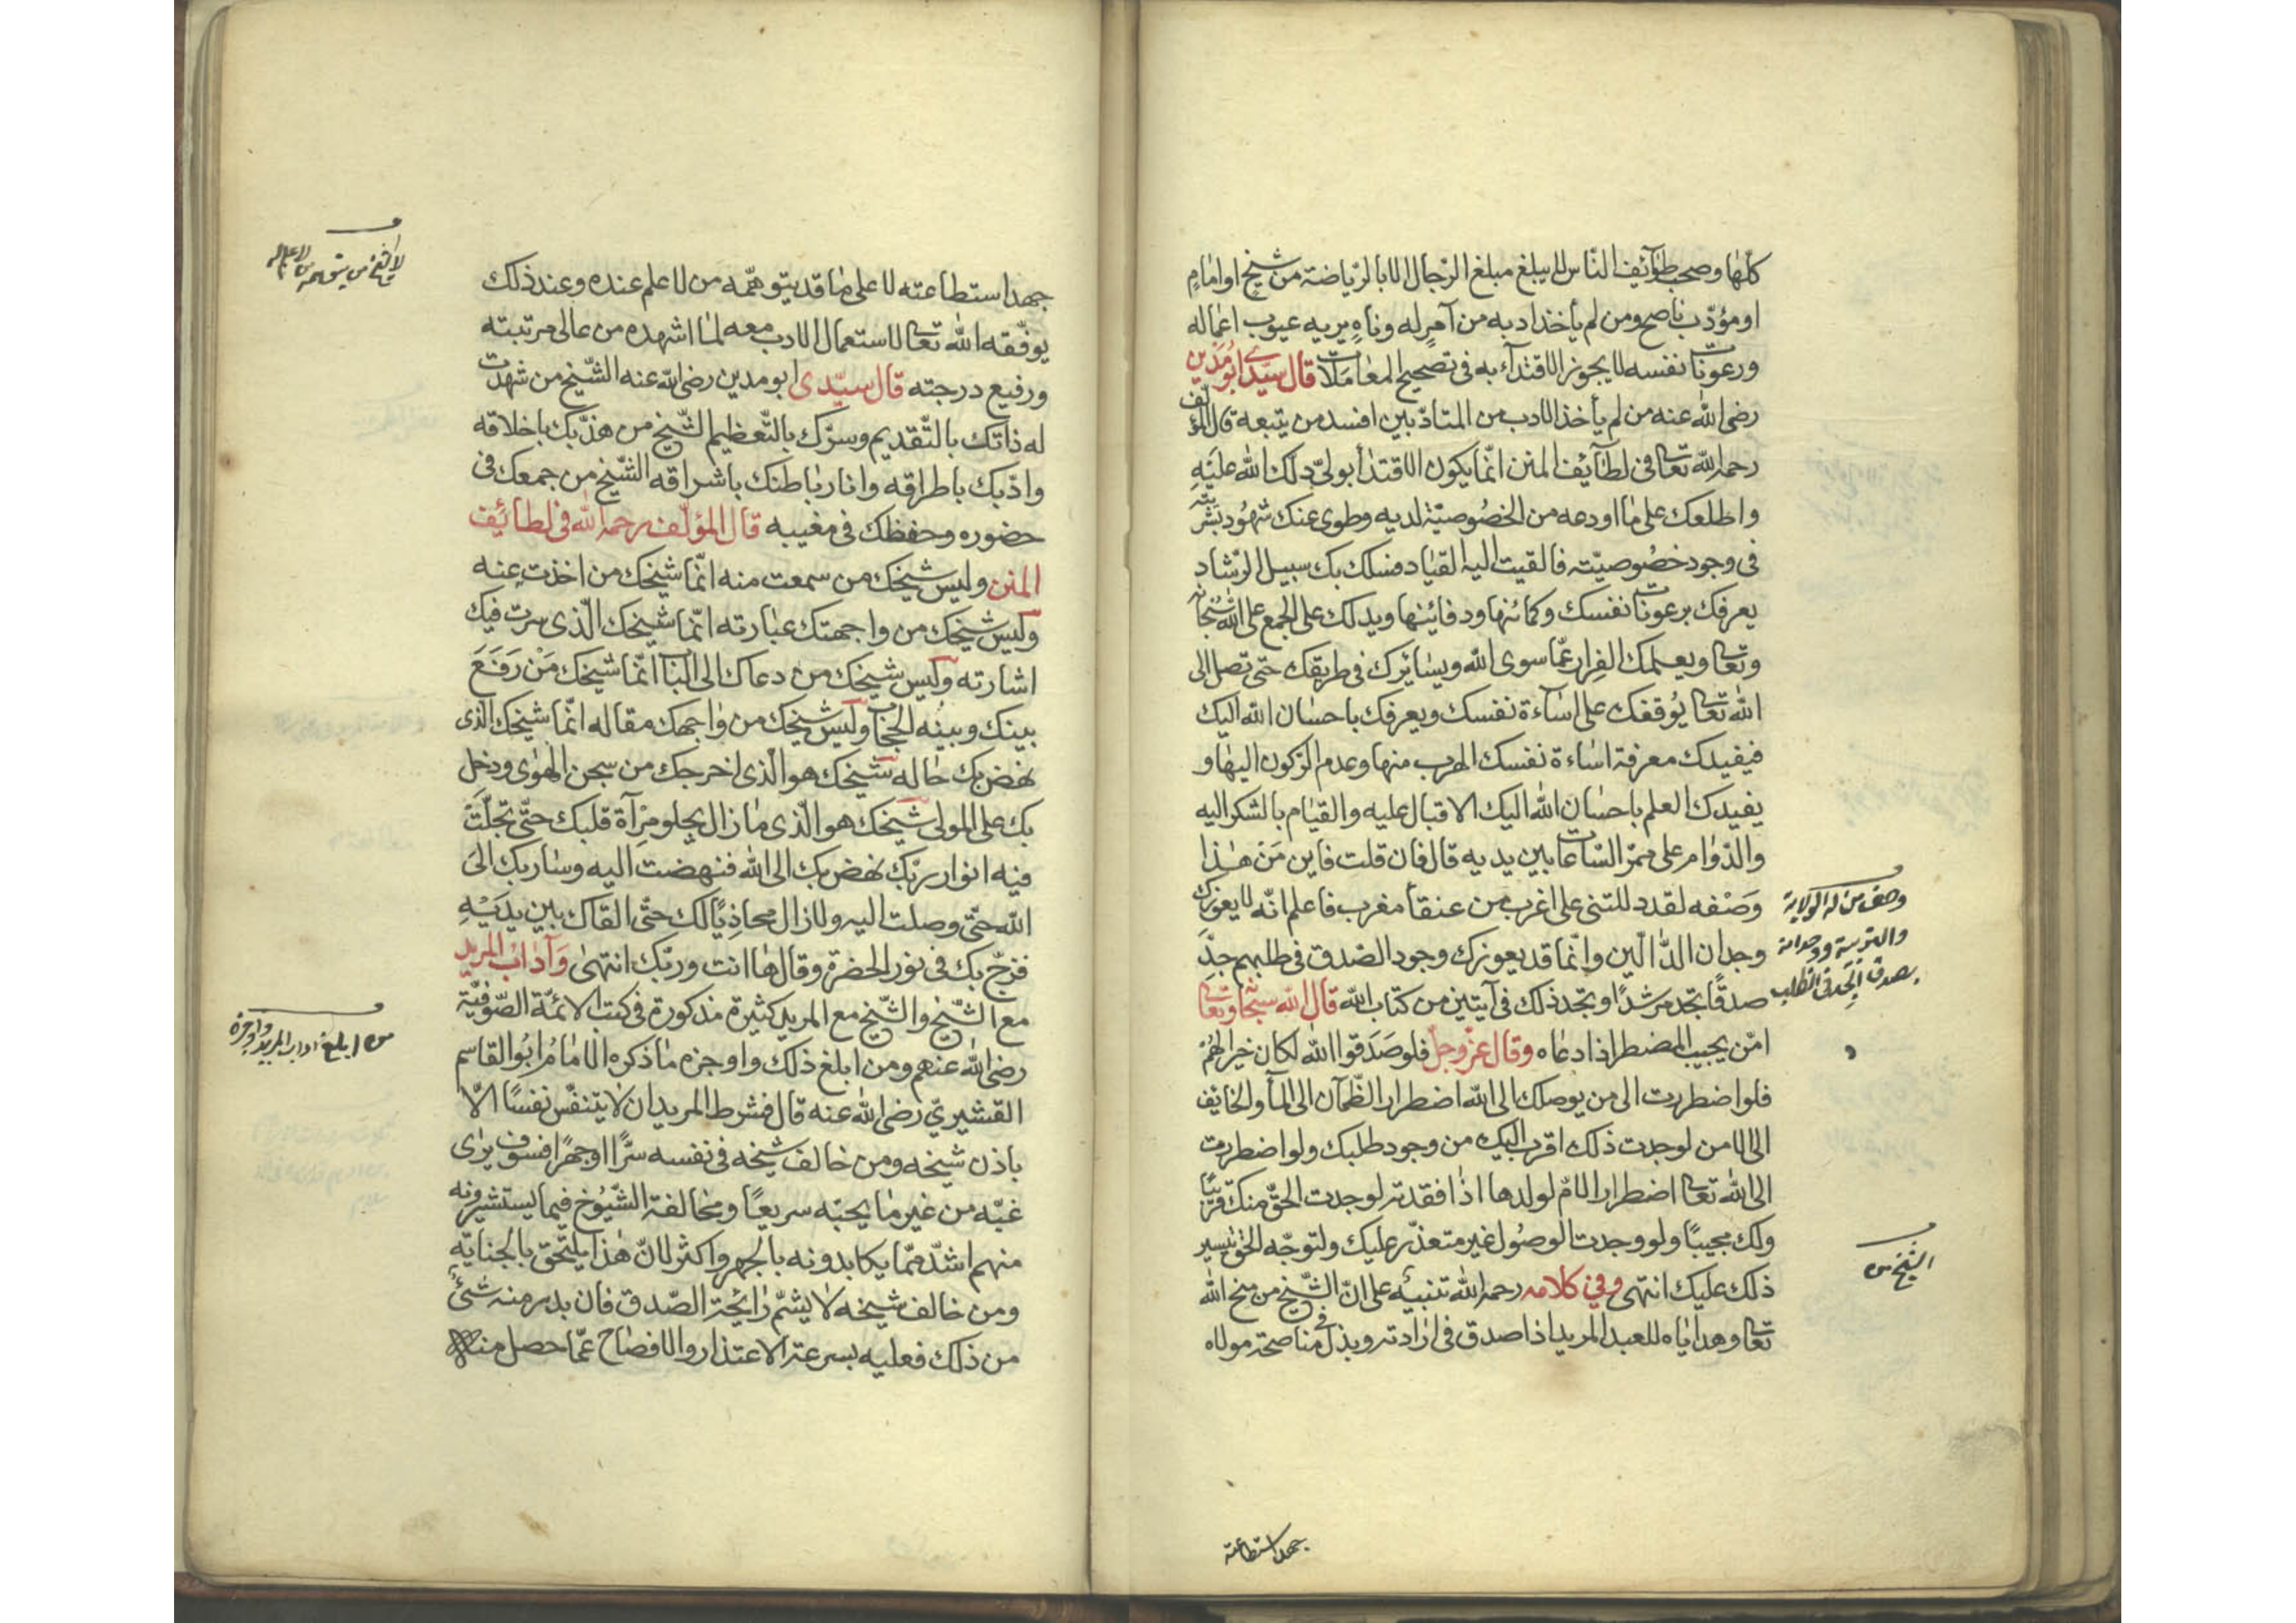 كلّها وصحب طوآئف النّاس لا يبلغ مبلغ الرّجال الا بالرّياضة من شيخ او امامٍ
او مؤدّب ناصح ومن لم يأخذ ادبه من آمرٍ له وناهٍ يريه عيوب اعماله
ورعونات نفسه لا يجوز الاقتدآء به فى تصحيح المعاملات قال سيّدي ابو مدين
رضى الله عنه من لم يأخذ الادب من المتادّبين افسد من يتبعه قال المؤلّف
رحمه الله تعالى فى لطآئف المنن انّما يكون الاقتدأ بوليّ دلّك الله عليه
واطلعك على ما اودعه من الخصُوصيّة لديه وطوى عنك شهُود بشريّته
فى وجود خصُوصيّته فالقيت اليه القياد فسلك بك سبيل الرّشاد
يعرفك برعونات نفسك وكمائنها ودفائنها ويدلك على الجمع على الله سُبحانه
وتعالى ويعلمك الفِرار عمّا سوى الله ويسائرك فى طريقك حتى تصل الى
الله تعالى يُوقفك على اسَآءة نفسك ويعرفك باحسَان الله اليك
فيفيدك معرفة اسَاءة نفسك الهرب منها وعدم الرّكون اليها و
يفيدك العلم باحسَان الله اليك الاقبال عليه والقيام بالشكر اليه
والدّوام على ممرّ السّاعات بين يديه قال فان قلت فاين مَنْ هٰذا
وَصْفه لقد دللتنى على اغرب من عنقأ مغرب فاعلم انّه لا يعوزك
وجدان الدّالّين وانّما قد يعوزك وجود الصّدق فى طلبهم جدّ
صدقًا تجد مرشدًا وتجد ذلك فى آيتين من كتاب الله قال الله سبحانه وتعالى
امّن يجيب المضطر اذا دعاه وقال عزّ وجلّ فلو صَدَقوا الله لكان خيرًا لهُمْ
فلو اضطررت الى من يوصلك الى الله اضطرار الظّمآن الى المأ والخائف
الى الامن لوجدت ذلك اقرب اليك من وجود طلبك ولو اضطررت
الى الله تعالى اضطرار الامّ لولدها اذا فقدته لوجدت الحقّ منك قريبًا
ولك مجيبًا ولو وجدت الوصُول غير متعذّر عليك ولتوجّه الحقّ بتيسير
ذلك عليك انتهى وفي كلامه رحمه الله تنبيه على انّ الشّيخ من منح الله
تعالى وهداياه للعبد المريد اذا صدق فى ارادته وبذل فى مناصحة مولاه
وصف من له الولاية
والتربية ووجدانه
بصدق الجد فى الطلب
الشيخ من
جهد استطاعته
جهد استطاعته لا على ما قد يتوهّمه من لا علم عنده وعند ذلك
يوفّقه الله تعالى لاستعمال الادب معه لما اشهده من عالى مرتبته
ورفيع درجته قال سيّدى ابو مدين رضى الله عنه الشّيخ من شهدت
له ذاتك بالتّقديم وسرّك بالتّعظيم الشّيخ من هذّبك باخلاقه
وادّبك باطراقه وانار باطنك باشراقه الشّيخ من جمعك فى
حضوره وحفظك فى مغيبه قال المؤلّف رحمه الله فى لطائف
المنن وليس شيخك من سمعت منه انّما شيخك من اخذت عنه
وليس شيخك من واجهتك عبارته انّما شيخك الّذى سرت فيك
اشارته وليس شيخك من دعاك الى الباب انّما شيخك مَنْ رَفَعَ
بينك وبينه الحجاب وليس شيخك من واجهك مقاله انّما شيخك الّذى
نهض بك حاله شيخك هو الّذى اخرجك من سجن الهوى ودخل
بك على المولى شيخك هو الّذى ما زال يجلو مِرْآة قلبك حتّى تجلّتْ
فيه انوار ربّك نهض بك الى الله فنهضت اليه وسار بك الى
الله حتّى وصلت اليه ولا زال محاذيًا لك حتّى القاك بين يديْهِ
فزجّ بك فى نور الحضرة وقال ها انت وربّك انتهى وَآدابُ المريد
مع الشّيخ والشّيخ مع المريد كثيرة مذكورة فى كتب الائمّة الصّوفيّة
رضى الله عنهم ومن ابلغ ذلك واوجزه ما ذكره الامامُ ابُو القاسم
القشيريّ رضى الله عنه قال فشرط المريد ان لا يتنفّس نفسًا الّا
باذن شيخه ومن خالف شيخه فى نفسه سرًّا او جهرًا فسوف يرى
غبّه من غير ما يحبّه سريعًا ومخالفة الشّيُوخ فيما يستشيرونه
منهم اشدّ ممّا يكابدونه بالجهر واكثر لانّ هٰذا يلتحق بالجنايةِ
ومن خالف شيخه لا يشمّ رائحة الصّدق فان بدر منه شئ
من ذلك فعليه بسرعة الاعتذار والافصاح عمّا حصل منه
من ابلغ اداب المريد واوجزه